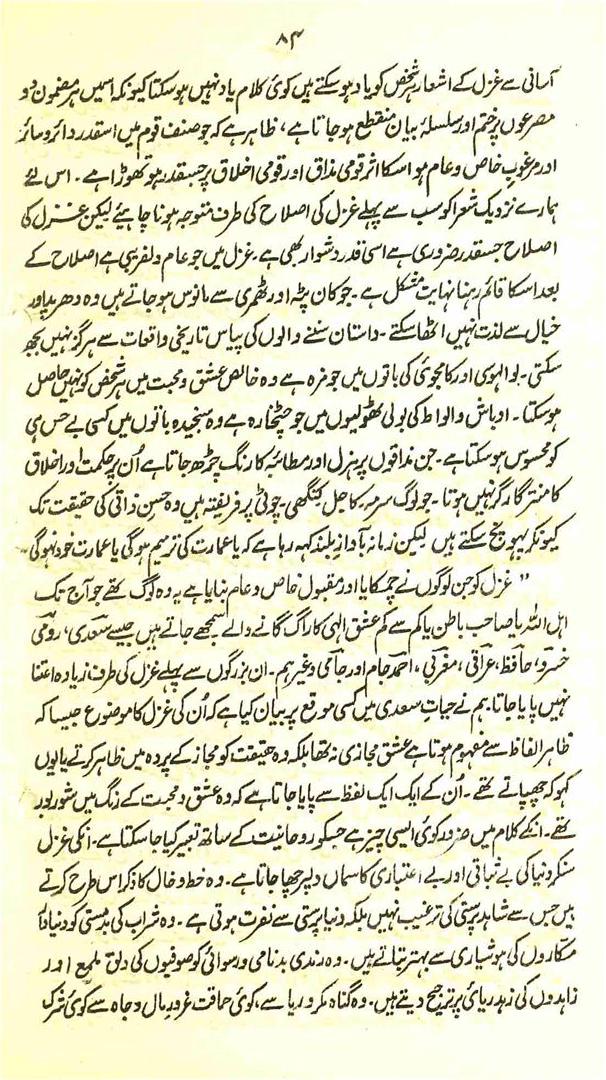 ۸۴
آسانی سے غزل کے اشعار ہر شخص کو یاد ہو سکتے ہیں کوئی کلام یاد نہیں ہو سکتا کیونکہ اسمیں ہر مضمون دو
مصرعوں پر ختم اور سلسلۂ بیان منقطع ہو جاتا ہے، ظاہر ہے کہ جو صنف قوم میں اسقدر دائر و سائر
اور مرغوبِ خاص و عام ہو اسکا اثر قومی مذاق اور قومی اخلاق پر جسقدر ہو تھوڑا ہے۔ اس لئے
ہمارے نزدیک شعرا کو سب سے پہلے غزل کی اصلاح کی طرف متوجہ ہونا چاہیئے لیکن غزل کی
اصلاح جسقدر ضروری ہے اسی قدر دشوار بھی ہے۔ غزل میں جو عام دلفریبی ہے اصلاح کے
بعد اسکا قائم رہنا نہایت مشکل ہے۔ جو کان ٹپہ اور ٹھمری سے مانوس ہو جاتے ہیں وہ دھرپد اور
خیال سے لذت نہیں اٹھا سکتے۔ داستان سننے والوں کی پیاس تاریخی واقعات سے ہرگز نہیں بجھ
سکتی۔ بوالہوسی اور کامجوئی کی باتوں میں جو مزہ ہے وہ خالص عشق و محبت میں ہر شخص کو نہیں حاصل
ہو سکتا۔ اوباش و الواط کی بولی ٹھولیوں میں جو چٹخارہ ہے وہ سنجیدہ باتوں میں کسی بے حس ہی
کو محسوس ہو سکتا ہے۔ جن مذاقوں پر ہزل اور مطائبہ کا رنگ چڑھ جاتا ہے اُن پر حکمت اور اخلاق
کا منتر کارگر نہیں ہوتا۔ جو لوگ سرمہ۔ کاجل کنگھی۔ چوٹی پر فریفتہ ہیں وہ حسنِ ذاتی کی حقیقت تک
کیونکر پہونچ سکتے ہیں لیکن زمانہ بآوازِ بلند کہہ رہا ہے کہ یا عمارت کی ترمیم ہوگی یا عمارت خود نہوگی۔
”غزل کو جن لوگوں نے چمکایا اور مقبولِ خاص و عام بنایا ہے یہ وہ لوگ تھے جو آج تک
اہل اللہ یا صاحبِ باطن یا کم سے کم عشقِ الٰہی کا راگ گانے والے سمجھے جاتے ہیں جیسے سعدی، رومی
خسرو، حافظ، عراقی، مغربی، احمد جام اور جامی وغیرہم۔ ان بزرگوں سے پہلے غزل کی طرف زیادہ اعتنا
نہیں پایا جاتا۔ ہم نے حیاتِ سعدی میں کسی موقع پر بیان کیا ہے کہ اُن کی غزل کا موضوع جیسا کہ
ظاہر الفاظ سے مفہوم ہوتا ہے عشقِ مجازی نہ تھا بلکہ وہ حقیقت کو مجاز کے پردہ میں ظاہر کرتے یا یوں
کہو کہ چھپاتے تھے۔ اُن کے ایک ایک لفظ سے پایا جاتا ہے کہ وہ عشق و محبت کے رنگ میں شور بور
تھے۔ انکے کلام میں ضرور کوئی ایسی چیز ہے جسکو روحانیت کے ساتھ تعبیر کیا جا سکتا ہے۔ انکی غزل
سنکر دنیا کی بے ثباتی اور بے اعتباری کا سماں دلپر چھا جاتا ہے۔ وہ خط و خال کا ذکر اس طرح کرتے
ہیں جس سے شاہد پرستی کی ترغیب نہیں بلکہ دنیا پرستی سے نفرت ہوتی ہے۔ وہ شراب کی بدمستی کو دنیادار
مکاروں کی ہوشیاری سے بہتر بتاتے ہیں۔ وہ رندی بدنامی و رسوائی کو صوفیوں کی دلقِ ملمع اور
زاہدوں کی زہد ریائی پر ترجیح دیتے ہیں۔ وہ گناہ مکر و ریا سے، کوئی حماقت غرورِ مال و جاہ سے کوئی شرک